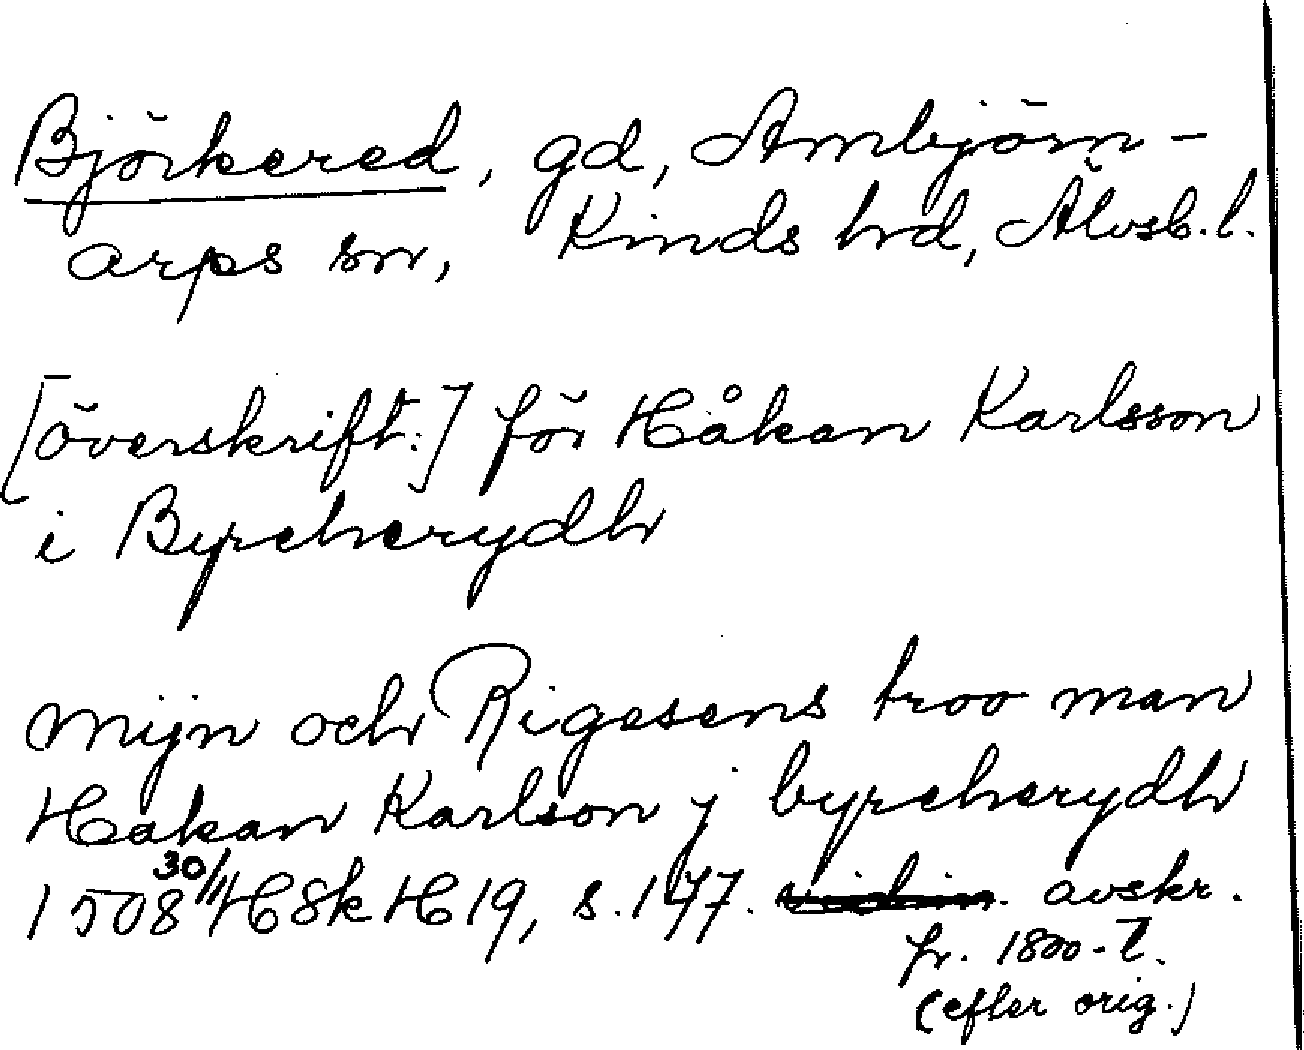 Björkered, gd, Ambjörn-
arps sn, Kinds hd, Älvsb. l.
[överskrift:] för Håkan Karlsson
i Byrcherydh
mijn och Rigesens troo man
Hakan Karlson j byrcherydh
1508 30/11 HSk H 19, s. 177. avskr.
fr. 1800-t.
(efter orig.)